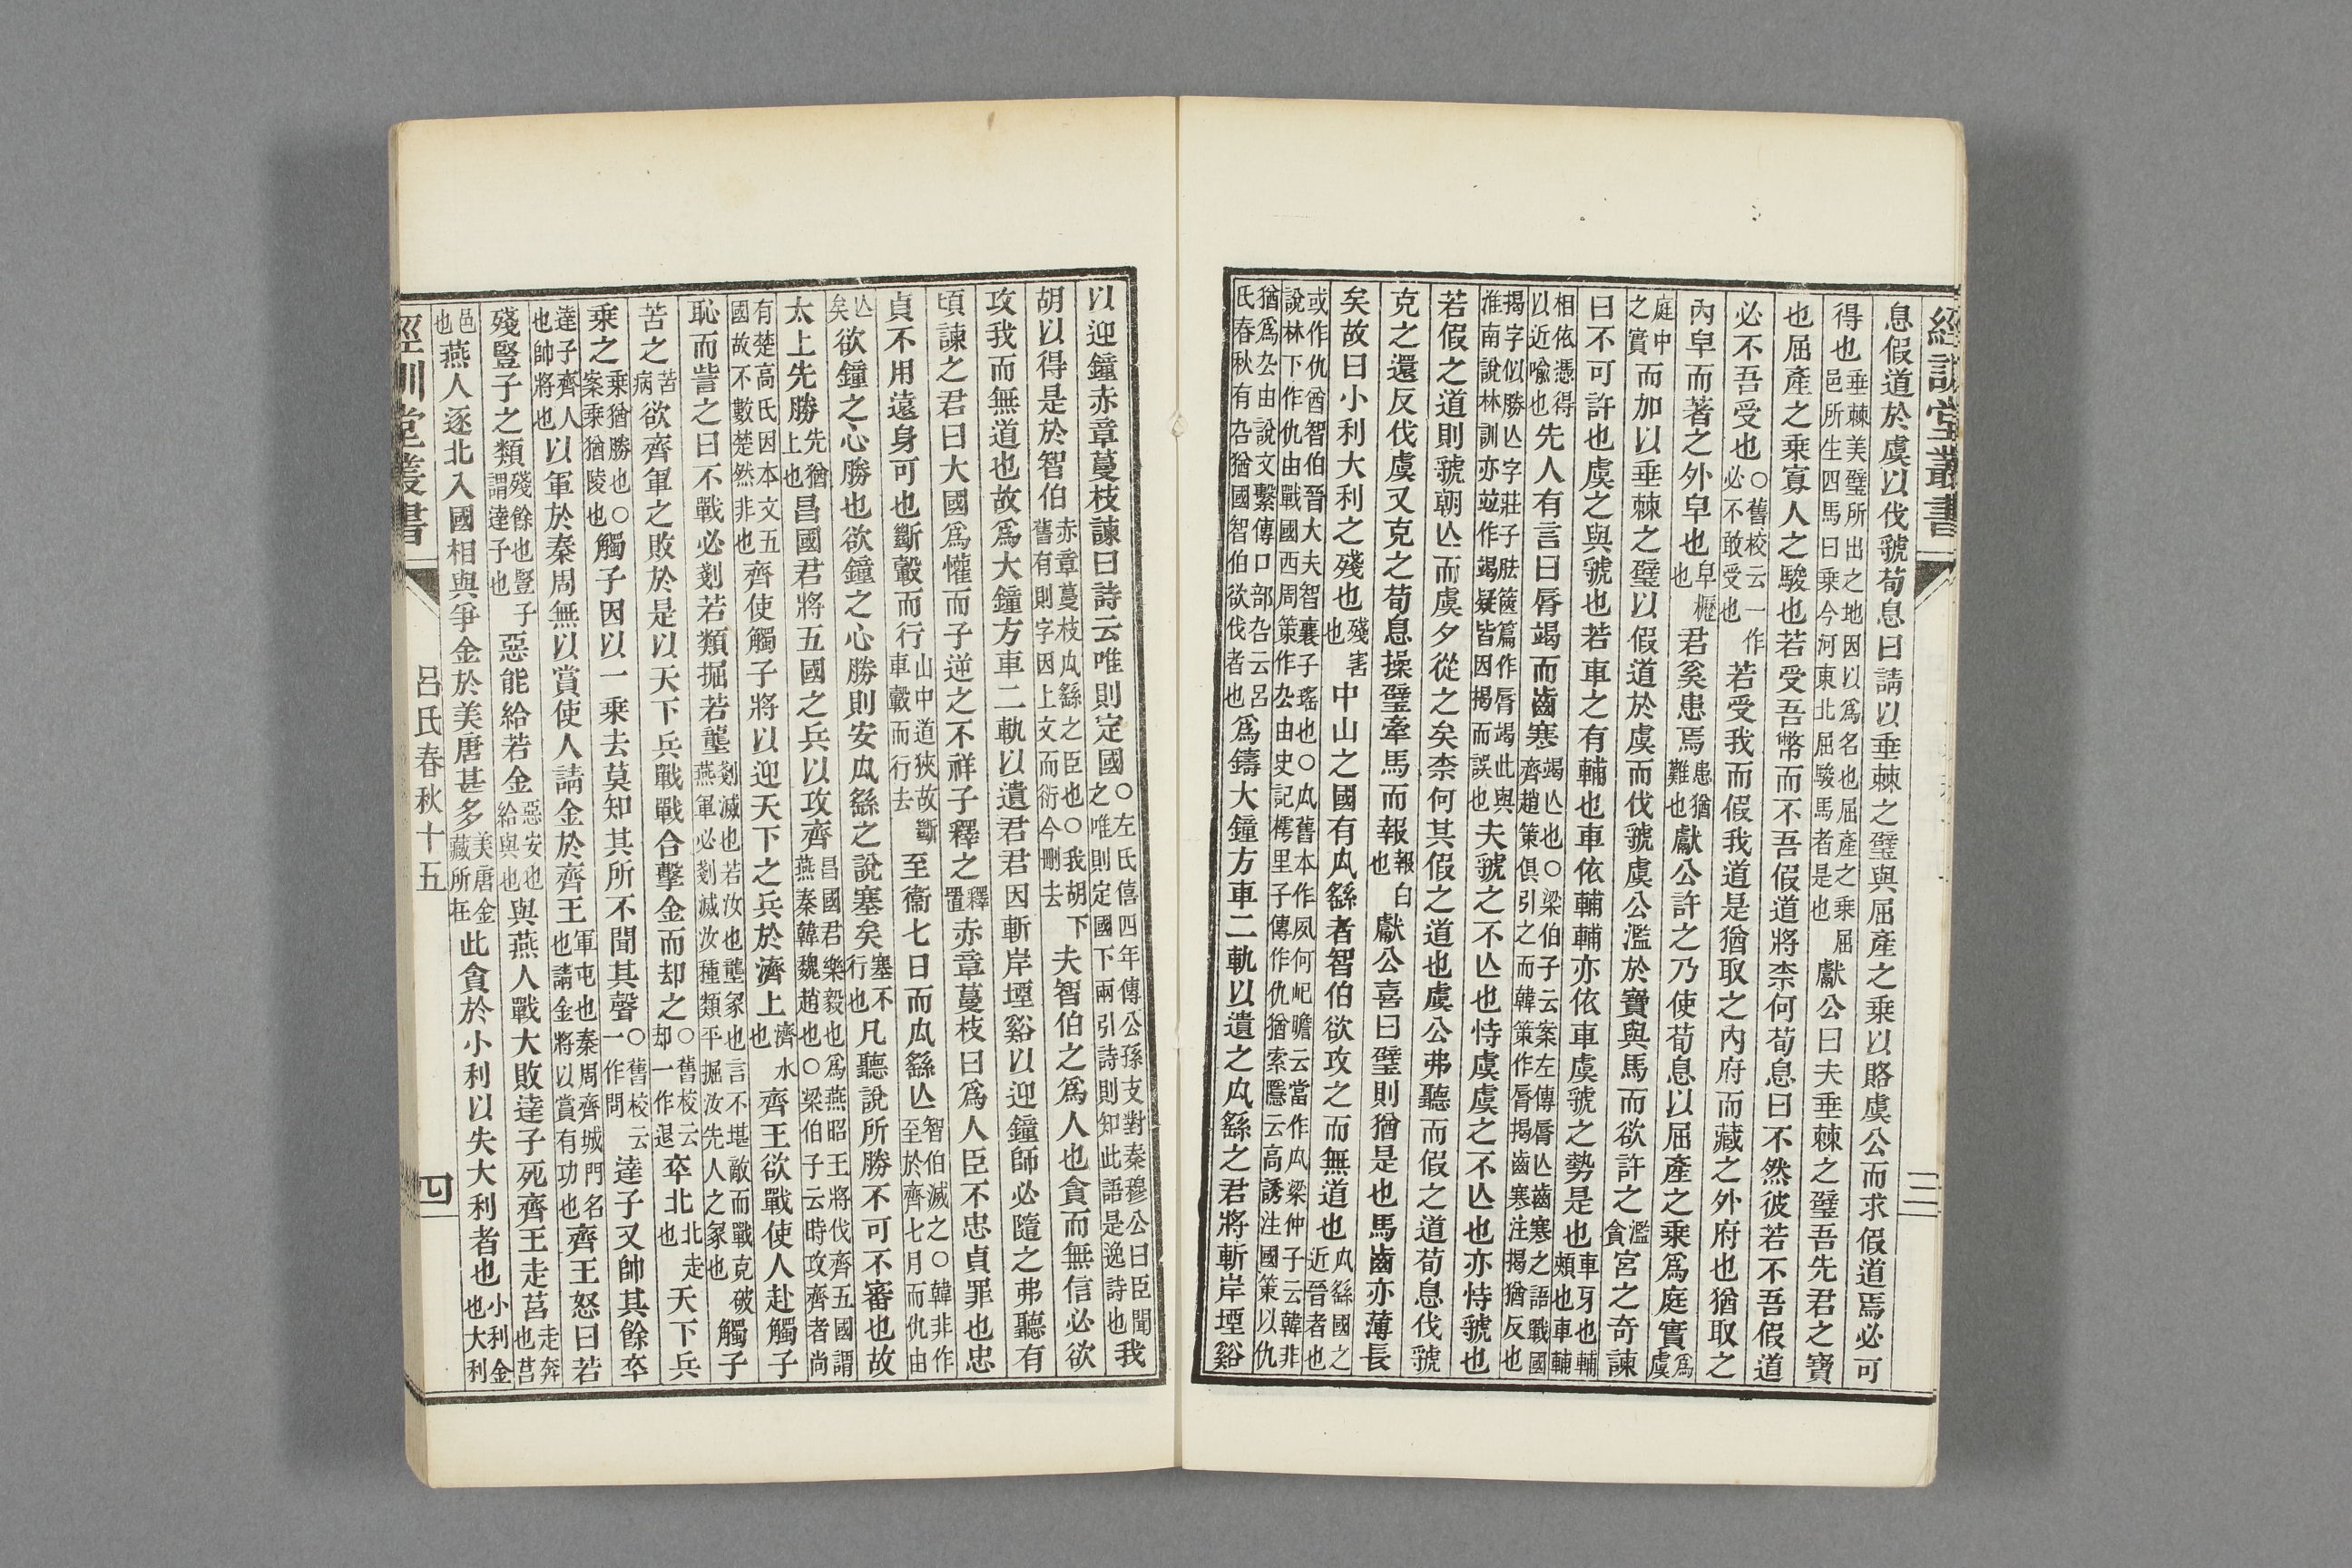 經訓堂叢書 三
息假道於虞以伐虢荀息曰請以垂棘之璧與屈產之乘以賂虞公而求假道焉必可
得也垂棘美璧所出之地因以爲名也屈產之乘屈邑所生四馬曰乘今河東北屈駿馬者是也獻公曰夫垂棘之璧吾先君之寶
也屈產之乘寡人之駿也若受吾幣而不吾假道將柰何荀息曰不然彼若不吾假道
必不吾受也○舊校云一作必不敢受也若受我而假我道是猶取之內府而藏之外府也猶取之
內皁而著之外皁也皁櫪也君奚患焉患猶難也獻公許之乃使荀息以屈產之乘爲庭實爲虞
庭中之實而加以垂棘之璧以假道於虞而伐虢虞公濫於寶與馬而欲許之濫貪宮之奇諫
曰不可許也虞之與虢也若車之有輔也車依輔輔亦依車虞虢之勢是也車牙也輔頰也車輔
相依憑得以近喻也先人有言曰脣竭而齒寒竭亾也○梁伯子云案左傳脣亾齒寒之語戰國齊趙策俱引之而韓策作脣揭齒寒注揭猶反也
揭字似勝亾字莊子胠篋篇作脣竭此與淮南說林訓亦竝作竭疑皆因揭而誤也夫虢之不亾也恃虞虞之不亾也亦恃虢也
若假之道則虢朝亾而虞夕從之矣柰何其假之道也虞公弗聽而假之道荀息伐虢
克之還反伐虞又克之荀息操璧牽馬而報報白也獻公喜曰璧則猶是也馬齒亦薄長
矣故曰小利大利之殘也殘害也中山之國有厹繇者智伯欲攻之而無道也厹繇國之近晉者也
或作仇酋智伯晉大夫智襄子瑤也○厹舊本作夙何屺瞻云當作厹梁仲子云韓非說林下作仇由戰國西周策作厹由史記樗里子傳作仇猶索隱云高誘注國策以仇
猶爲厹由說文繫傳口部叴云呂氏春秋有叴猶國智伯欲伐者也爲鑄大鐘方車二軌以遺之厹繇之君將斬岸堙谿
以迎鐘赤章蔓枝諫曰詩云唯則定國○左氏僖四年傳公孫支對秦穆公曰臣聞之唯則定國下兩引詩則知此語是逸詩也我
胡以得是於智伯赤章蔓枝厹繇之臣也○我胡下舊有則字因上文而衍今刪去夫智伯之爲人也貪而無信必欲
攻我而無道也故爲大鐘方車二軌以遺君君因斬岸堙谿以迎鐘師必隨之弗聽有
頃諫之君曰大國爲懽而子逆之不祥子釋之釋置赤章蔓枝曰爲人臣不忠貞罪也忠
貞不用遠身可也斷轂而行山中道狹故斷車轂而行去至衞七日而厹繇亾智伯滅之○韓非作至於齊七月而仇由
亾矣欲鐘之心勝也欲鐘之心勝則安厹繇之說塞矣塞不行也凡聽說所勝不可不審也故
太上先勝先猶上也昌國君將五國之兵以攻齊昌國君樂毅也爲燕昭王將伐齊五國謂燕秦韓魏趙也○梁伯子云時攻齊者尚
有楚高氏因本文五國故不數楚然非也齊使觸子將以迎天下之兵於濟上濟水也齊王欲戰使人赴觸子
恥而訾之曰不戰必剗若類掘若壟剗滅也若汝也壟冢也言不堪敵而戰克破燕軍必剗滅汝種類平掘汝先人之冢也觸子
苦之苦病欲齊軍之敗於是以天下兵戰戰合擊金而却之○舊校云却一作退卒北北走也天下兵
乘之乘猶勝也○案乘猶陵也觸子因以一乘去莫知其所不聞其聲○舊校云一作問達子又帥其餘卒
達子齊人也帥將也以軍於秦周無以賞使人請金於齊王軍屯也秦周齊城門名也請金將以賞有功也齊王怒曰若
殘豎子之類殘餘也豎子謂達子也惡能給若金惡安也給與也與燕人戰大敗達子死齊王走莒走奔也莒
邑也燕人逐北入國相與爭金於美唐甚多美唐金藏所在此貪於小利以失大利者也小利金也大利
經訓堂叢書 呂氏春秋十五 四